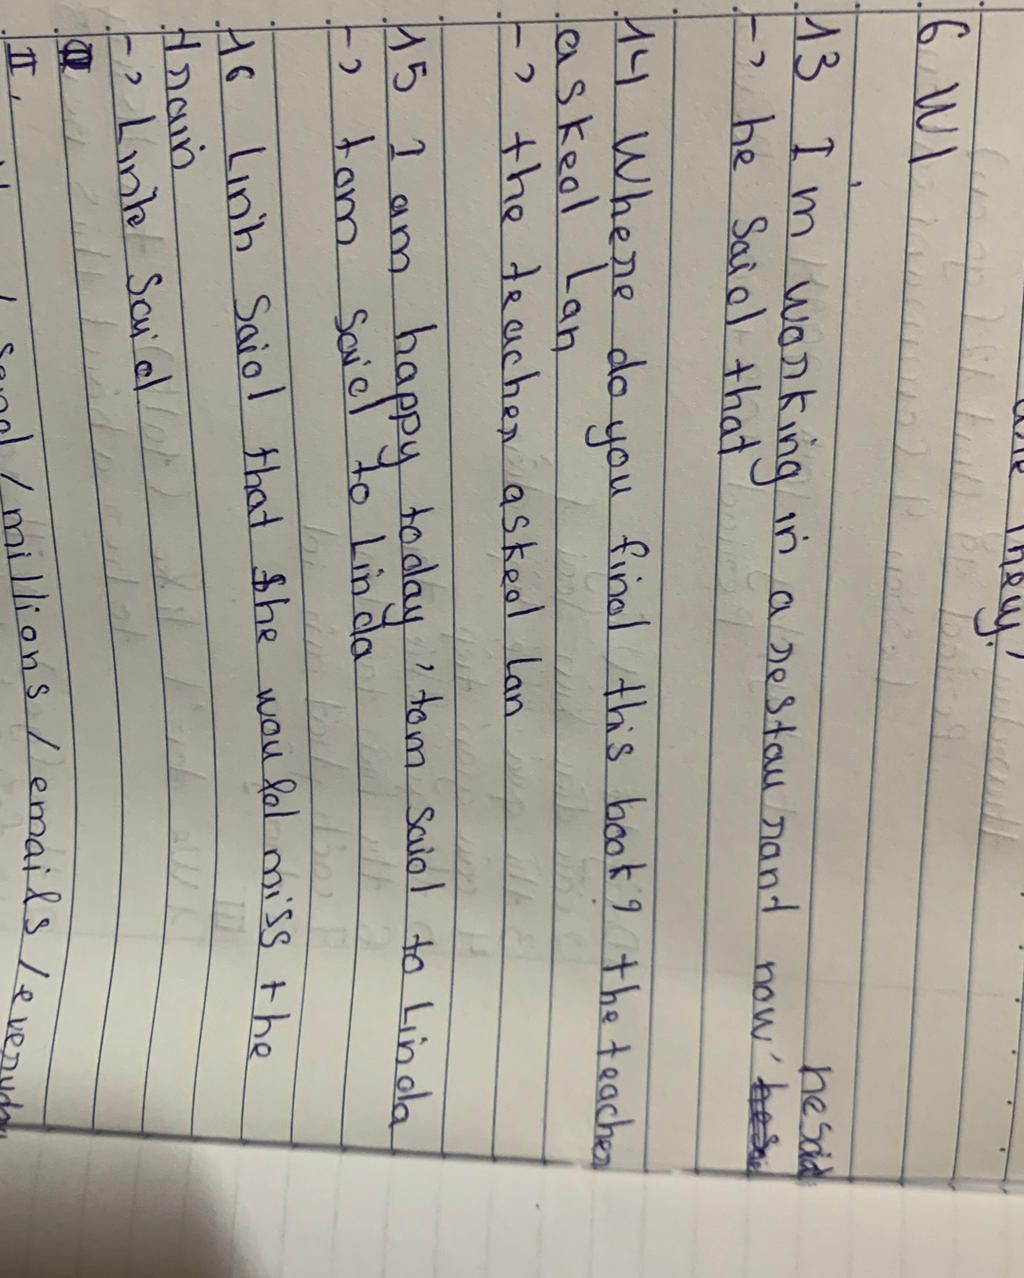 are they?
6 Wl
he said
13 I'm working in a restaurant now'
-> he said that
14 Where do you find this book? the teacher
asked Lan
-> the teacher asked Lan
15 I am happy today, tom said to Linda
-> tom said to Linda
16 Linh said that she would miss the
train
-> Linh said
II,
send / millions / emails / everyday